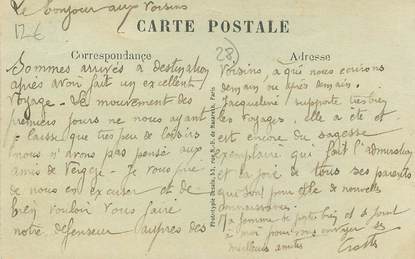 Le bonjour aux Voisins
12€
CARTE POSTALE
28
Correspondance
Adresse
Sommes arrivés à destination
après avoir fait un excellent
voyage - Le mouvement des
premiers jours ne nous ayant
laissé que très peu de loisirs
nous n'avons pas pensé aux
amis de - Je vous prie
de nous en excuser et de
bien vouloir vous faire
notre défenseur auprès des
Phototype Détaile, rue N.-D. de Nazareth, Paris
Voisins, à qui nous écrirons
demain ou après demain.
Jacqueline supporte très bien
les voyages. Elle a été et
est encore du sagesse
exemplaire qui fait l'admiration
et la joie de tous ses parents
que sont pour elle de nouvelles
connaissances.
Ma femme se porte bien et se joint
à moi pour vous envoyer ses
meilleures amitiés